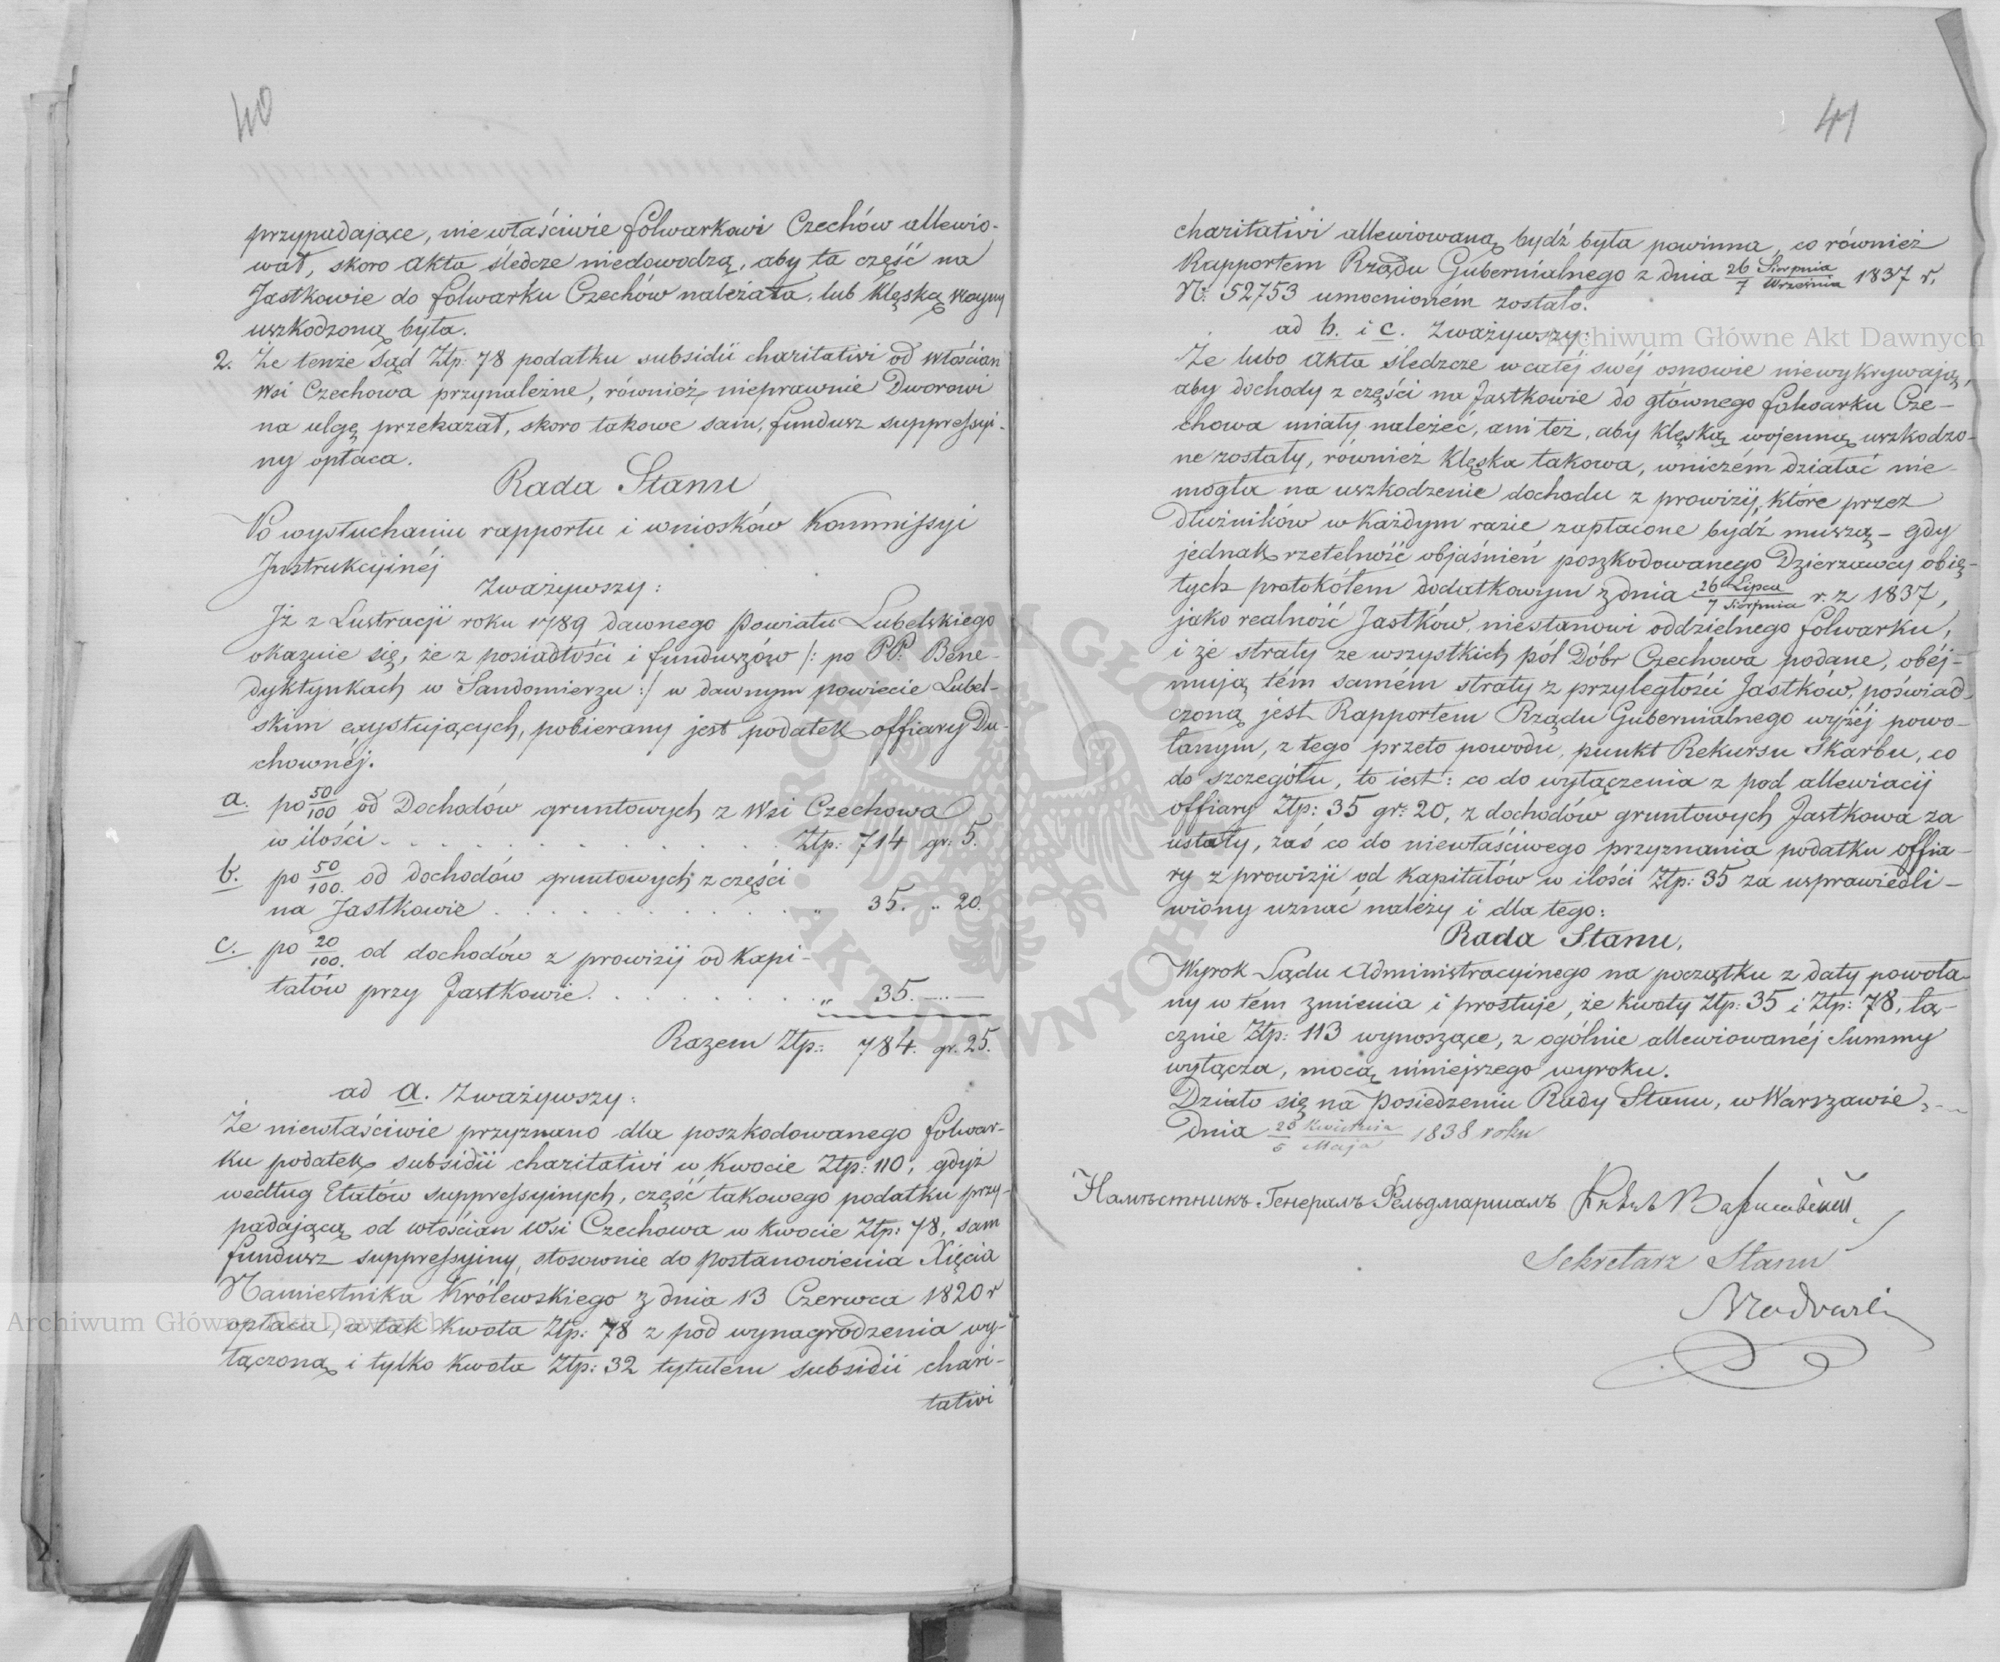 40
przypadające, niewłaściwie folwarkowi Czechów allewio-
wał, skoro Akta śledcze niedowodzą, aby ta część na
Jastkowie do folwarku Czechów należała, lub klęską woyny
uszkodzoną była.
2. Że tenże Sąd Ztp: 78 podatku subsidii charitativi od włościan
wsi Czechowa przynależne, również nieprawnie Dworowi
na ulgę przekazał, skoro takowe sam fundusz suppressyi-
ny opłaca.
Rada Stanu
Po wysłuchaniu rapportu i wniosków Kommissyi
Instrukcyinéj
Zważywszy:
Iż z Lustracji roku 1789 dawnego Powiatu Lubelskiego
okazuie się, że z posiadłości i funduszów /: po PP: Bene-
dyktynkach w Sandomierzu :/ w dawnym powiecie Lubel-
skim exystujących, pobierany jest podatek offiary Du-
chownéj.
a. po 50/100 od Dochodów gruntowych z Wsi Czechowa
w ilości . . . . . . . . . . . . Ztp: 714 gr: 5.
b. po 50/100. od dochodów gruntowych z części
na Jastkowie . . . . . . . . . . „ 35. „ 20.
c. po 20/100. od dochodów z prowizij od kapi-
tałów przy Jastkowie . . . . . . . „ 35. — —
Razem Ztp: 784. gr. 25.
ad a. Zważywszy:
Że niewłaściwie przyznano dla poszkodowanego folwar-
ku podatek subsidii charitativi w kwocie Ztp: 110, gdyż
według Etatów suppressyinych, część takowego podatku przy-
padającą od włościan Wsi Czechowa w kwocie Ztp: 78, sam
fundusz suppressyiny, stosownie do Postanowienia Xięcia
Namiestnika Królewskiego z dnia 13 Czerwca 1820 r
opłaca, a tak kwota Ztp: 78 z pod wynagrodzenia wy-
łączoną i tylko kwota Ztp: 32 tytułem subsidii chari-
tativi
41
charitativi allewiowaną bydź była powinna, co również
Rapportem Rządu Gubernialnego z dnia 26 Sierpnia/7 Września 1837 r.
N: 52753 umocnioném zostało.
ad b. i c. Zważywszy:
Że lubo Akta śledzcze w całéj swéj osnowie niewykrywają,
aby dochody z części na Jastkowie do głównego folwarku Cze-
chowa miały należeć, ani też, aby klęską wojenną uszkodzo-
ne zostały, również klęska takowa, wniczém działać nie-
mogła na uszkodzenie dochodu z prowizij, które przez
dłużników w każdym razie zapłacone bydź muszą - gdy
jednak rzetelność objaśnień poszkodowanego Dzierżawcy obię-
tych protokółem dodatkowym z dnia 26 Lipca/7 Sierpnia r. z 1837,
jako realność Jastków, niestanowi oddzielnego folwarku,
i że straty ze wszystkich pól Dóbr Czechowa podane, obéj-
mują tém samém straty z przyległości Jastków, poświad-
czoną jest Rapportem Rządu Gubernialnego wyżéj powo-
łanym, z tego przeto powodu, punkt Rekursu Skarbu, co
do szczegółu, to iest: co do wyłączenia z pod allewiacij
offiary Ztp: 35 gr: 20, z dochodów gruntowych Jastkowa za
ustały, zaś co do niewłaściwego przyznania podatku offia-
ry z prowizji od kapitałów w ilości Ztp: 35 za usprawiedli-
wiony uznać należy i dla tego:
Rada Stanu,
Wyrok Sądu Administracyinego na początku z daty powoła-
ny w tém zmienia i prostuje, że kwoty Ztp: 35 i Ztp: 78, łą-
cznie Ztp: 113 wynoszące, z ogólnie allewiowanéj Summy
wyłącza, mocą niniejszego wyroku.
Działo się na Posiedzeniu Rady Stanu, w Warszawie
dnia 23 Kwietnia/5 Maja 1838 roku
Намѣстникъ Генералъ Фельдмаршалъ Князь Варшавскій
Sekretarz Stanu
Archiwum Główne Akt Dawnych
Archiwum Główne Akt Dawnych
ARCHIWUM GŁÓWNE AKT DAWNYCH